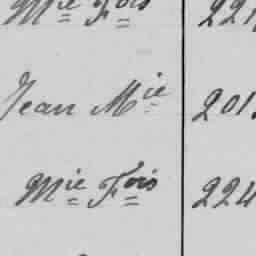 Mie Fois 221
Jean Mie 201.
Mie Fois 224